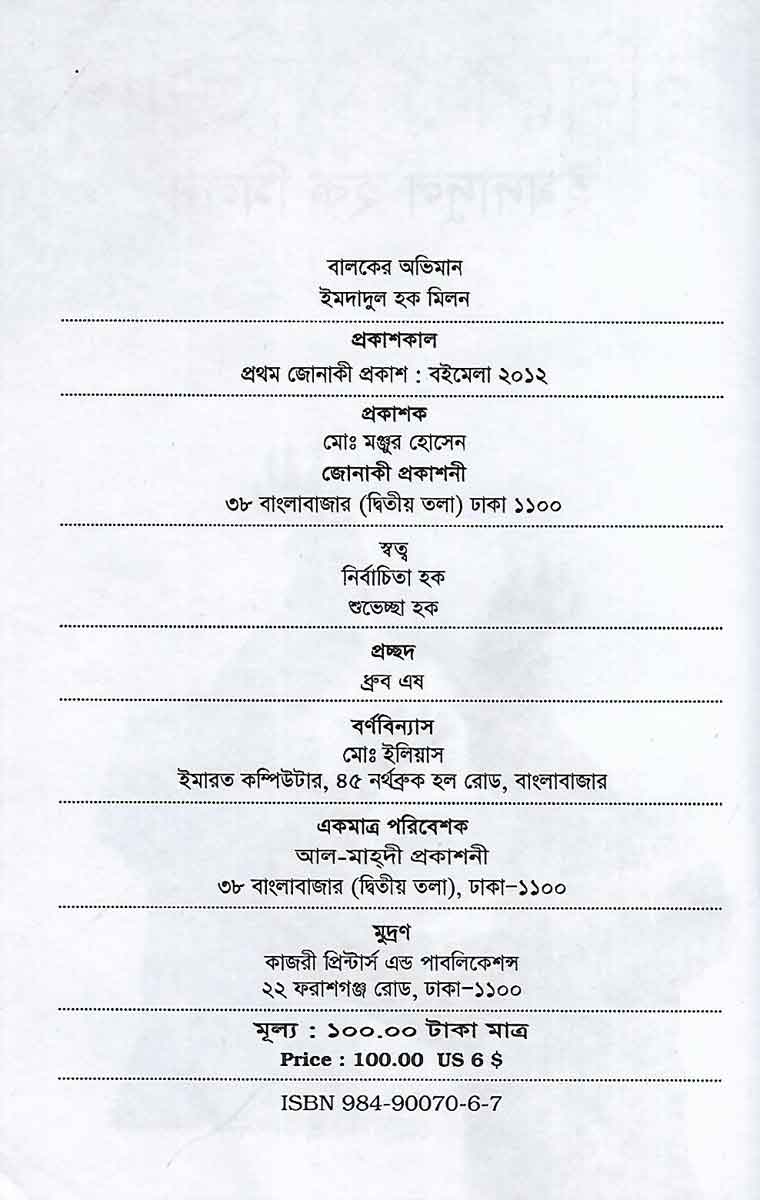 বালকের অভিমান
ইমদাদুল হক মিলন
প্রকাশকাল
প্রথম জোনাকী প্রকাশ : বইমেলা ২০১২
প্রকাশক
মোঃ মঞ্জুর হোসেন
জোনাকী প্রকাশনী
৩৮ বাংলাবাজার (দ্বিতীয় তলা) ঢাকা ১১০০
স্বত্ব
নির্বাচিতা হক
শুভেচ্ছা হক
প্রচ্ছদ
ধ্রুব এষ
বর্ণবিন্যাস
মোঃ ইলিয়াস
ইমারত কম্পিউটার, ৪৫ নর্থব্রুক হল রোড, বাংলাবাজার
একমাত্র পরিবেশক
আল-মাহ্‌দী প্রকাশনী
৩৮ বাংলাবাজার (দ্বিতীয় তলা), ঢাকা–১১০০
মুদ্রণ
কাজরী প্রিন্টার্স এন্ড পাবলিকেশন্স
২২ ফরাশগঞ্জ রোড, ঢাকা–১১০০
মূল্য : ১০০.০০ টাকা মাত্র
Price : 100.00 US 6 $
ISBN 984-90070-6-7